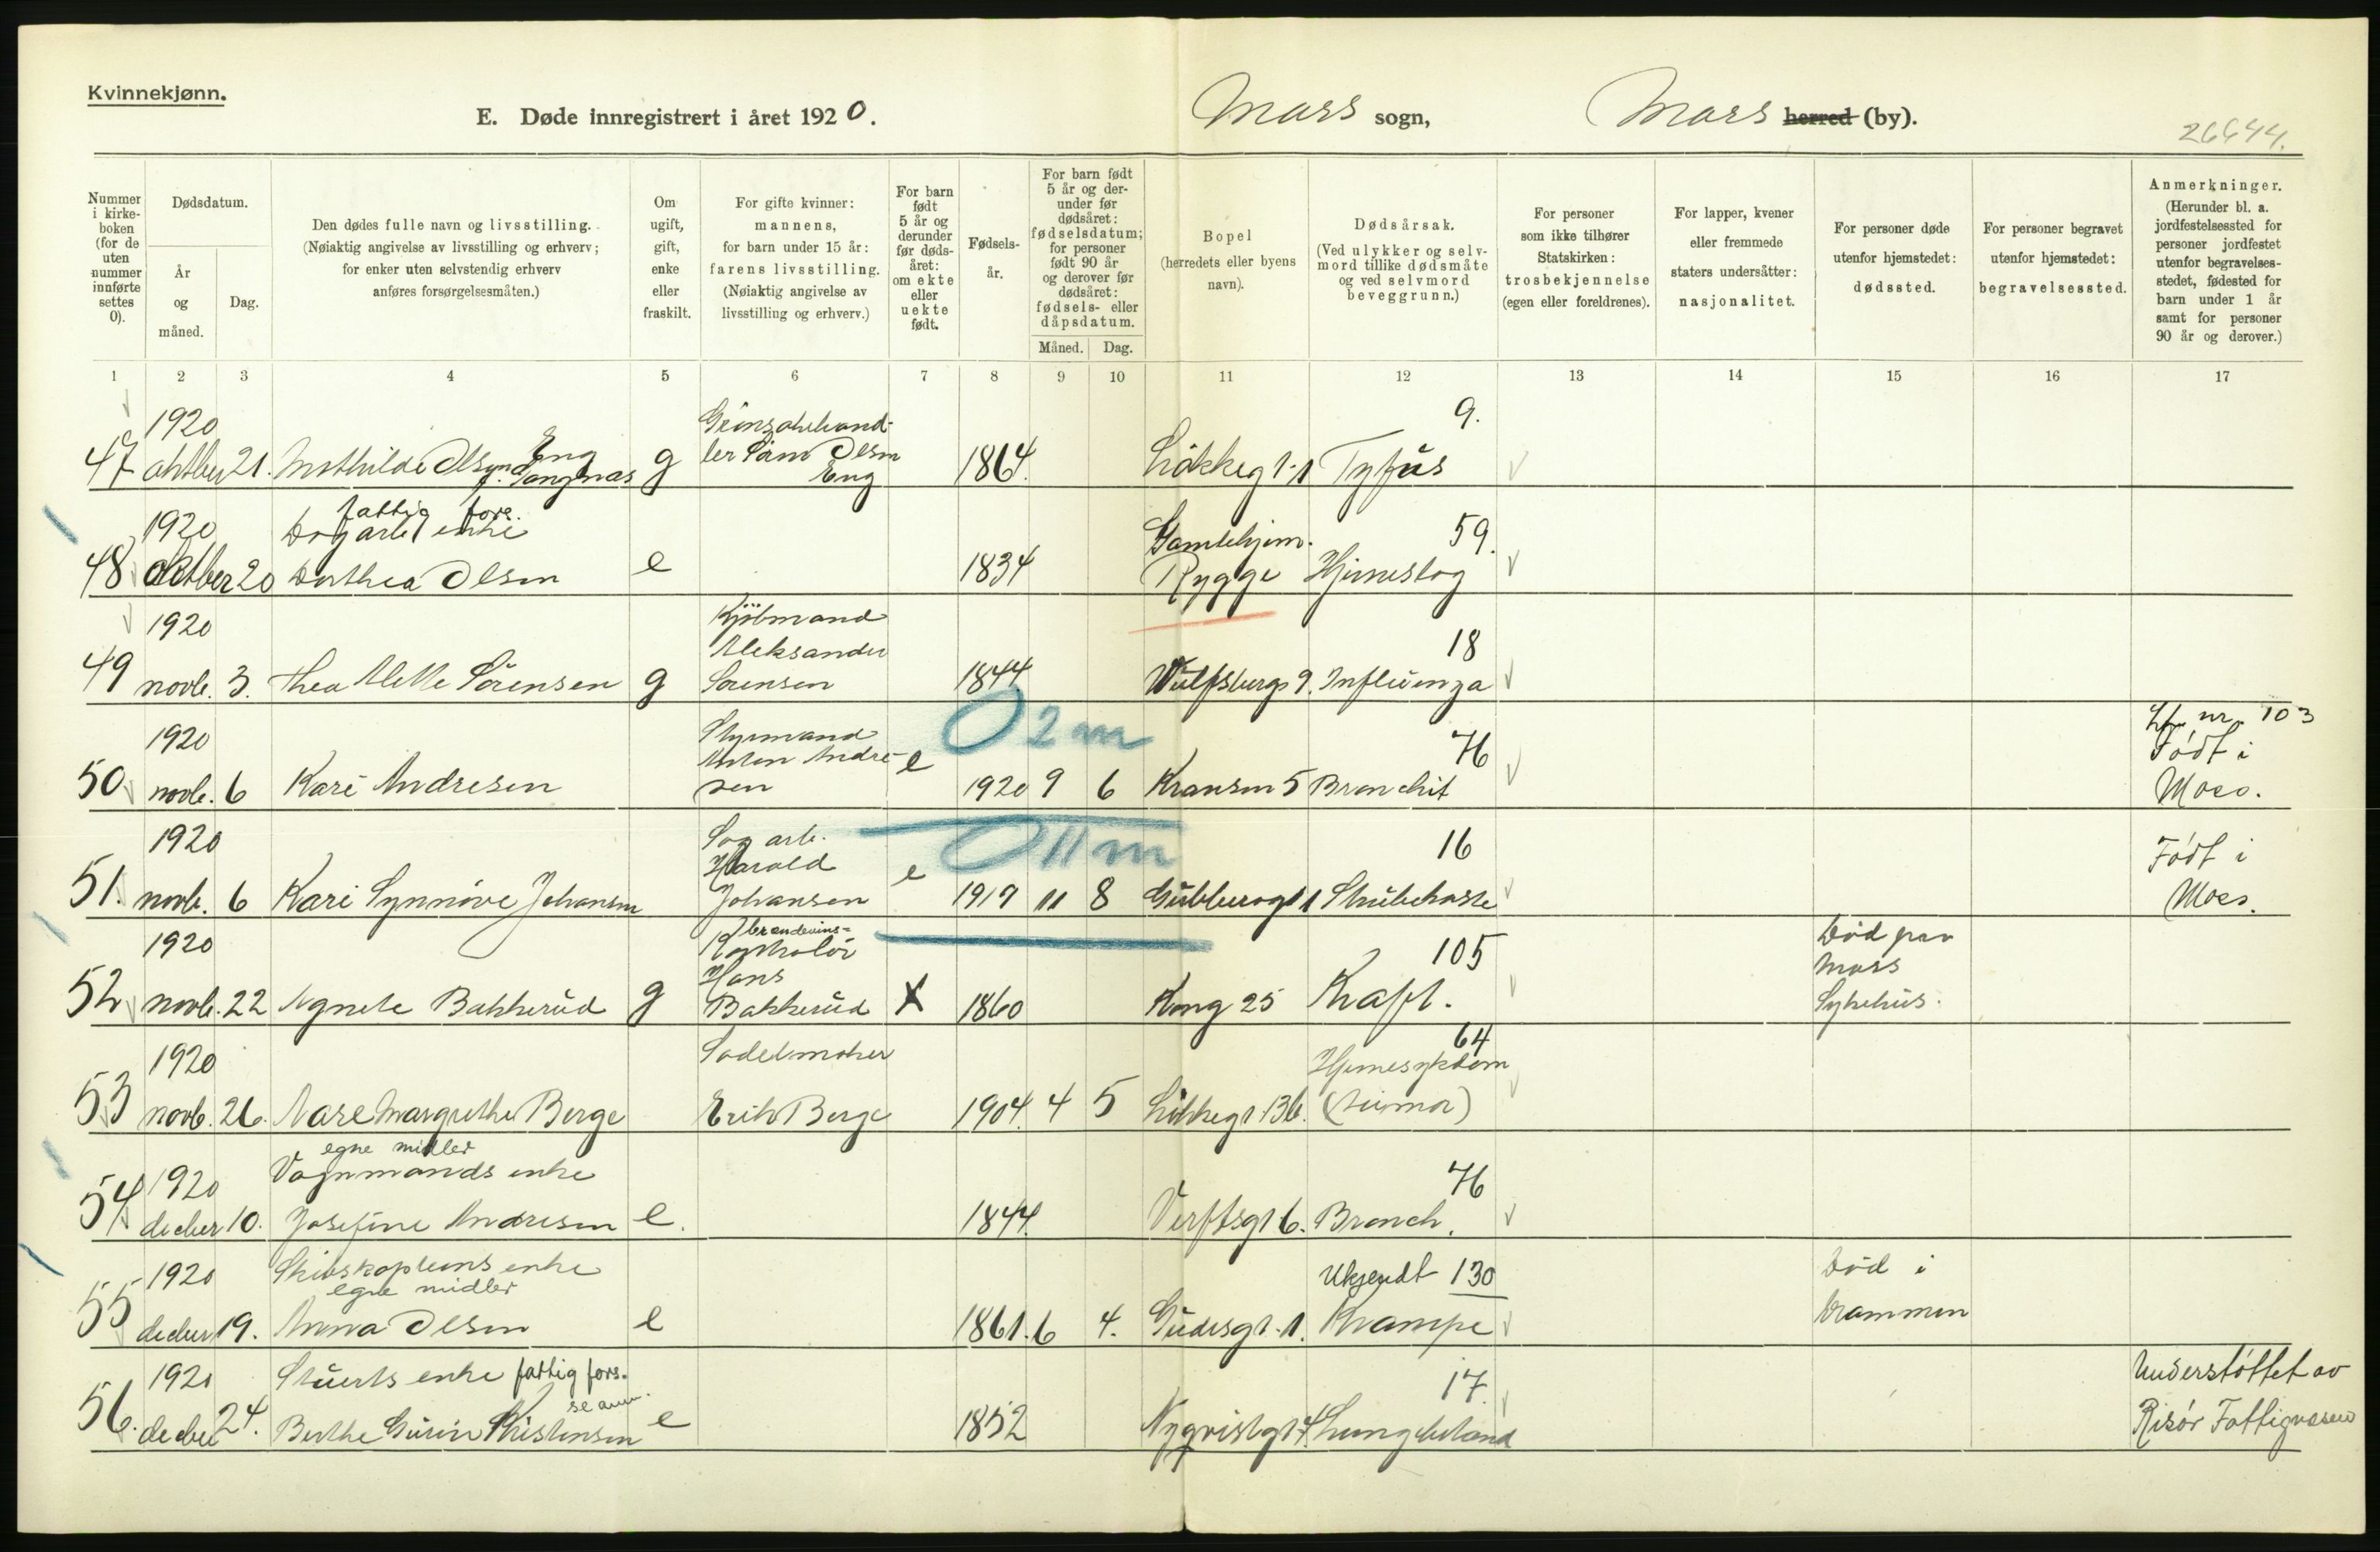 Kvinnekjønn.
E. Døde innregistrert i året 1920. Moss sogn, Moss herred (by).
26644.
Nummer i kirke-boken (for de uten nummer innførte settes 0).
Dødsdatum.
År og måned.
Dag.
Den dødes fulle navn og livsstilling. (Nøiaktig angivelse av livsstilling og erhverv; for enker uten selvstendig erhverv anføres forsørgelsesmåten.)
Om ugift, gift, enke eller fraskilt.
For gifte kvinner: mannens, for barn under 15 år: farens livsstilling. (Nøiaktig angivelse av livsstilling og erhverv.)
For barn født 5 år og derunder før døds-året: om ekte eller uekte født.
Fødsels-år.
For barn født 5 år og der-under før dødsåret: fødselsdatum; for personer født 90 år og derover før dødsåret: fødsels- eller dåpsdatum.
Måned. Dag.
Bopel (herredets eller byens navn).
Dødsårsak. (Ved ulykker og selv-mord tillike dødsmåte og ved selvmord beveggrunn.)
For personer som ikke tilhører Statskirken: trosbekjennelse (egen eller foreldrenes).
For lapper, kvener eller fremmede staters undersåtter: nasjonalitet.
For personer døde utenfor hjemstedet: dødssted.
For personer begravet utenfor hjemstedet: begravelsessted.
Anmerkninger. (Herunder bl. a. jordfestelsessted for personer jordfestet utenfor begravelses-stedet, fødested for barn under 1 år samt for personer 90 år og derover.)
1 2 3 4 5 6 7 8 9 10 11 12 13 14 15 16 17
1920 9.
47 oktber 21. Mathilde Olsen Eng g Olsen Eng 1864. Løkkegt 1 Tyfus
1920 fattig fors. enke Gamlehjem. 59.
48 oktber 20 Dorthea Olsen e 1834 Rygge Hjerneslag
1920 Kjöbmand Aleksander 18
49 novb. 3. Thea Alette Sørensen g Sørensen 1844 Wulfsbergs 9. Influenza
02m
1920 Styrmand Anton Andre- 76 Lf. nr. 103 Født i
50 novb. 6 Kari Andresen sen e 1920 9 6 Kransen 5 Bronchit Moss.
011m
1920 Sag arb. Harald 16 Født i
51. novb. 6 Kari Synnøve Johansen Johansen e 1919 11 8 Gubberogt 1 Strubehoste Moss.
1920 brændevins- Kontrolör Hans 105 Død paa Moss
52 novb. 22 Agnete Bakkerud g Bakkerud X 1860 Kong 25 Kræft. Sykehus.
1920 Sadelmaker 64 Hjernesykdom
53 novb. 26. Aase Margrethe Berge Erik Berge 1904. 4 5 Løkkegt 13b. (tumor)
1920 egne midler Vognmands enke 76
54 decber 10. Josefine Andresen e. 1844. Verftsgt 6. Bronch.
1920 Skibskapteins enke egne midler Ukjendt 130 Død i
55 decber 19. Anna Olsen e 1861. 6 4. Gudesgt. 1. Krampe Drammen
1920 Stuerts enke fattig fors. se anm. 17. Understøttet av
56. decber 24. Berthe Gurine Kristensen e 1852 Nyqvistgt 4. Lungebetænd Risør Fattigvæsen